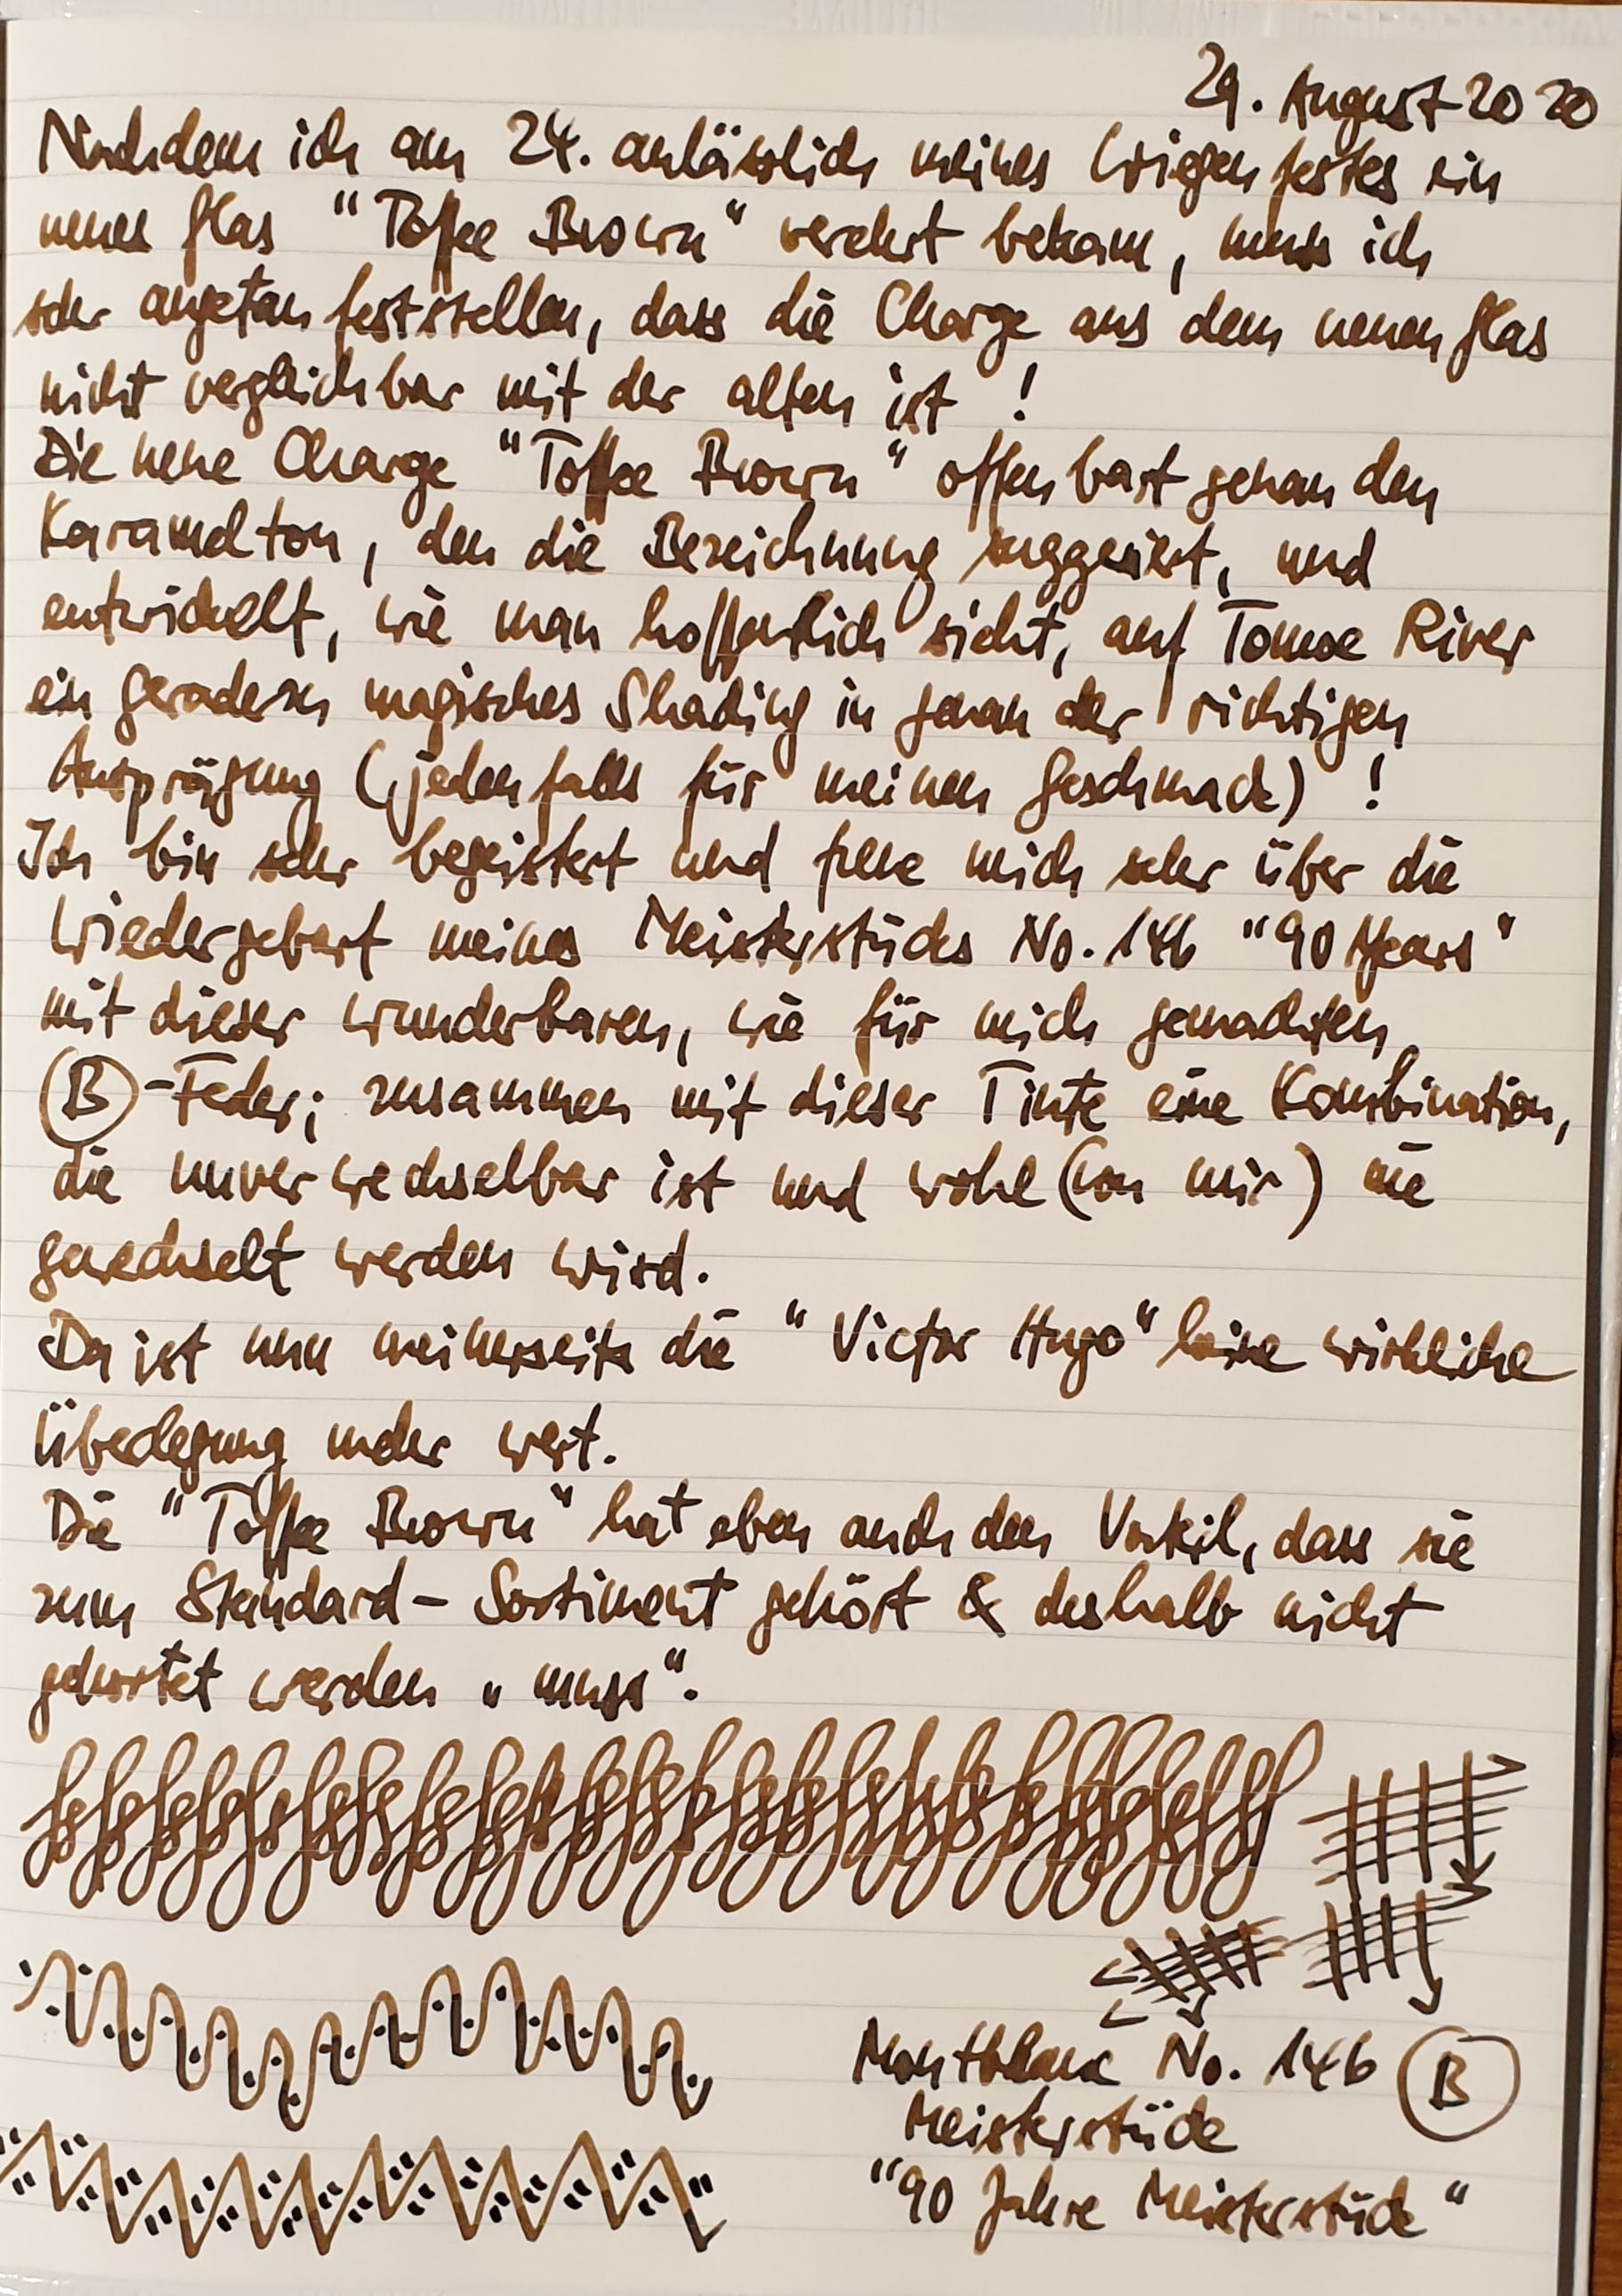 29. August 2020
Nachdem ich am 24. anlässlich meines Wiegenfestes ein
neues Glas "Toffee Brown" verehrt bekam, muss ich
sehr angetan feststellen, dass die Charge aus dem neuen Glas
nicht vergleichbar mit der alten ist !
Die neue Charge "Toffee Brown" offenbart genau den
Karamelton, den die Bezeichnung suggeriert, und
entwickelt, wie man hoffentlich sieht, auf Tomoe River
ein geradezu magisches Shading in genau der richtigen
Ausprägung (jedenfalls für meinen Geschmack) !
Ich bin sehr begeistert und freue mich sehr über die
Wiedergeburt meines Meisterstücks No. 146 "90 Years"
mit dieser wunderbaren, wie für mich gemachten
B -Feder; zusammen mit dieser Tinte eine Kombination,
die unverwechselbar ist und wohl (von mir) nie
gewechselt werden wird.
Da ist nun meinerseits die "Victor Hugo" keine wirkliche
Überlegung mehr wert.
Die "Toffee Brown" hat eben auch den Vorteil, dass sie
zum Standard-Sortiment gehört & deshalb nicht
gehortet werden „muss".
Montblanc No. 146 B
Meisterstück
"90 Jahre Meisterstück"